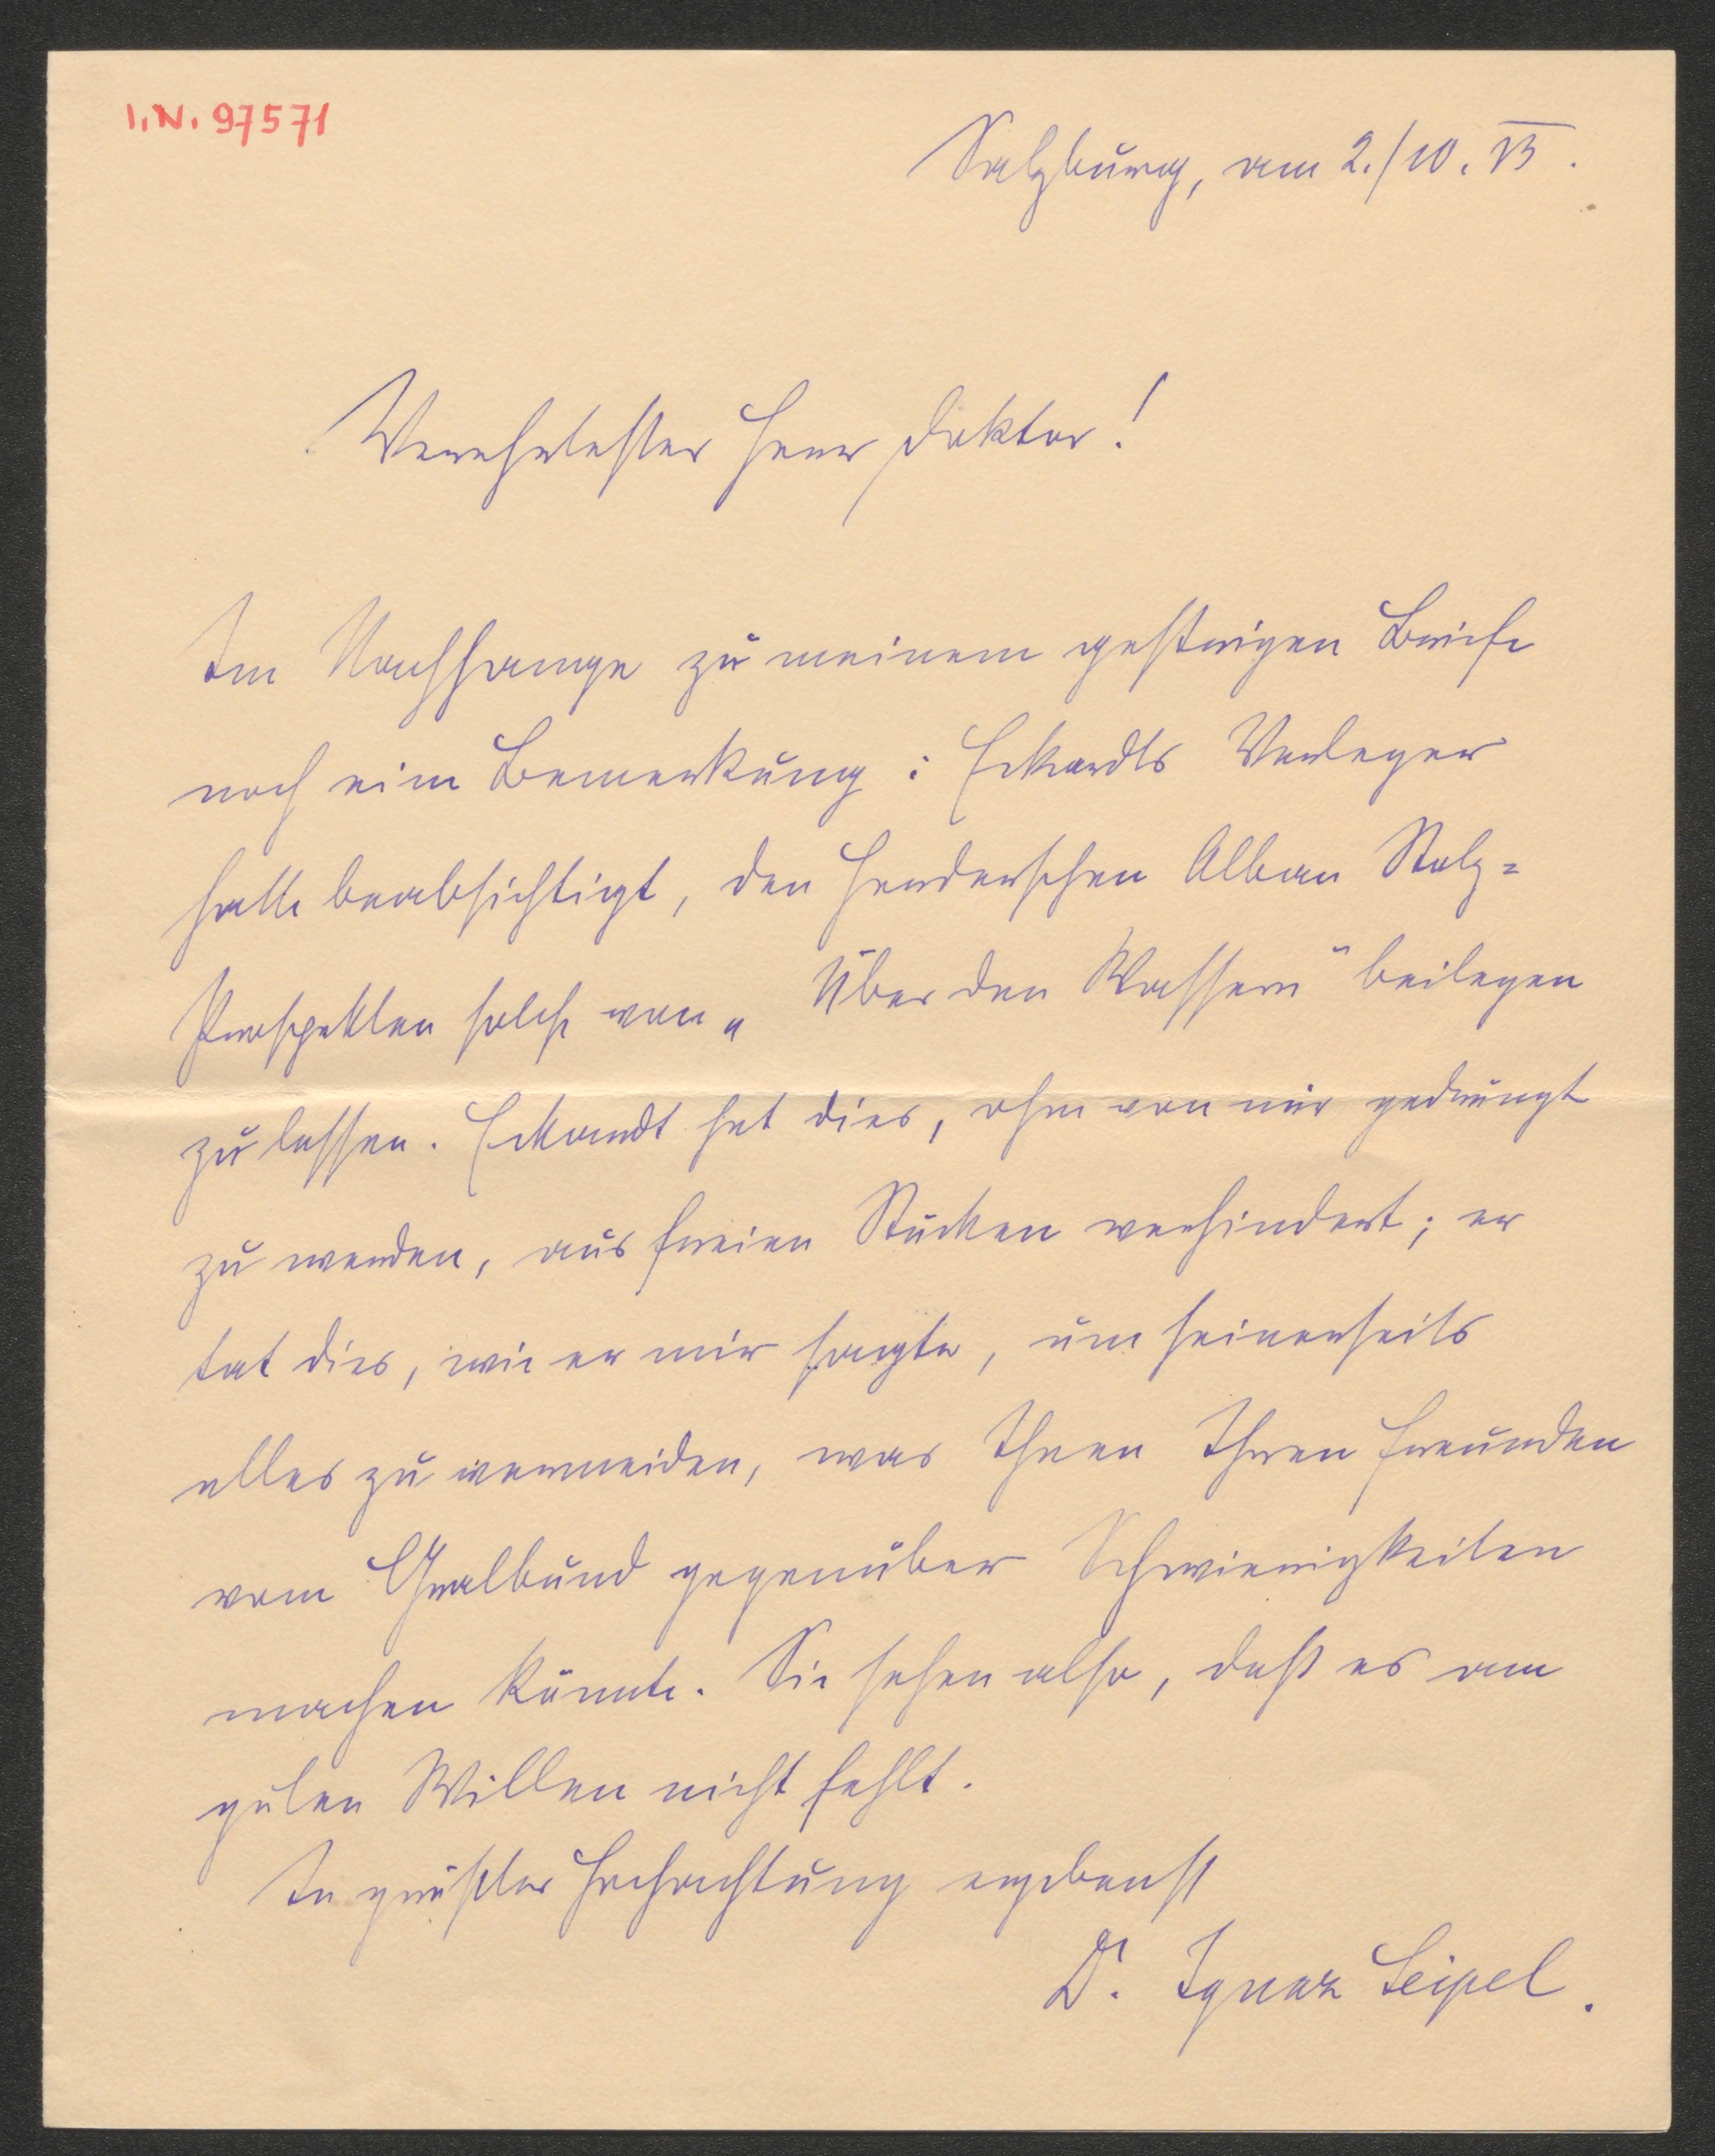 I.N. 97571
Salzburg, am 2./10. 13.
Verehrtester Herr Doktor!
Im Nachhange zu meinem gestrigen Briefe
noch eine Bemerkung: Eckardts Verleger
hatte beabsichtigt, den Herderschen Alban Stolz-
Prospekten solche von „Über den Wassern" beilegen
zu lassen. Eckardt hat dies, ohne von mir gedrängt
zu werden, aus freien Stücken verhindert; er
tat dies, wie er mir sagte, um seinerseits
alles zu vermeiden, was Ihnen Ihren Freunden
vom Gralbund gegenüber Schwierigkeiten
machen könnte. Sie sehen also, daß es am
guten Willen nicht fehlt.
In größter Hochachtung ergebenst
Dr. Ignaz Seipel.